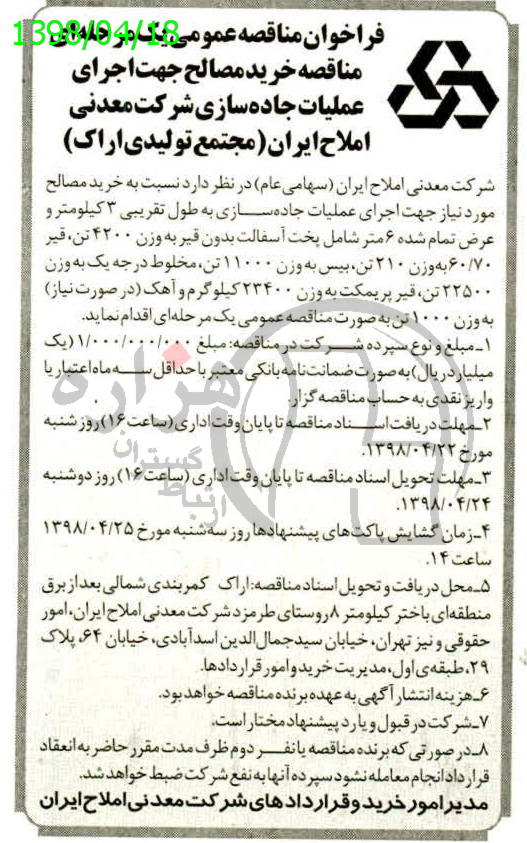 1398/04/18
فراخوان مناقصه عمومی یک مرحله‌ای
مناقصه خرید مصالح جهت اجرای
عملیات جاده‌سازی شرکت معدنی
املاح ایران (مجتمع تولیدی اراک)
شرکت معدنی املاح ایران (سهامی عام) در نظر دارد نسبت به خرید مصالح
مورد نیاز جهت اجرای عملیات جاده‌سازی به طول تقریبی ۳ کیلومتر و
عرض تمام شده ۶ متر شامل پخت آسفالت بدون قیر به وزن ۴۲۰۰ تن، قیر
۶۰/۷۰ به وزن ۲۱۰ تن، بیس به وزن ۱۱۰۰۰ تن، مخلوط درجه یک به وزن
۲۲۵۰۰ تن، قیر پریمکت به وزن ۲۳۴۰۰ کیلوگرم و آهک (در صورت نیاز)
به وزن ۱۰۰۰ تن به صورت مناقصه عمومی یک مرحله‌ای اقدام نماید.
۱ـ مبلغ و نوع سپرده شرکت در مناقصه: مبلغ ۱/۰۰۰/۰۰۰/۰۰۰ (یک
میلیارد ریال) به صورت ضمانت‌نامه بانکی معتبر با حداقل سه ماه اعتبار یا
واریز نقدی به حساب مناقصه گزار.
۲ـ مهلت دریافت اسناد مناقصه تا پایان وقت اداری (ساعت ۱۶) روز شنبه
مورخ ۱۳۹۸/۰۴/۲۲.
۳ـ مهلت تحویل اسناد مناقصه تا پایان وقت اداری (ساعت ۱۶) روز دوشنبه
۱۳۹۸/۰۴/۲۴.
۴ـ زمان گشایش پاکت‌های پیشنهادها روز سه‌شنبه مورخ ۱۳۹۸/۰۴/۲۵
ساعت ۱۴.
۵ـ محل دریافت و تحویل اسناد مناقصه: اراک کمربندی شمالی بعد از برق
منطقه‌ای باختر کیلومتر ۸ روستای طرمزد شرکت معدنی املاح ایران، امور
حقوقی و نیز تهران، خیابان سیدجمال‌الدین اسدآبادی، خیابان ۶۴، پلاک
۲۹، طبقه‌ی اول، مدیریت خرید و امور قراردادها.
۶ـ هزینه انتشار آگهی به عهده برنده مناقصه خواهد بود.
۷ـ شرکت در قبول و یا رد پیشنهاد مختار است.
۸ـ در صورتی که برنده مناقصه یا نفر دوم ظرف مدت مقرر حاضر به انعقاد
قرارداد انجام معامله نشود سپرده آنها به نفع شرکت ضبط خواهد شد.
مدیر امور خرید و قراردادهای شرکت معدنی املاح ایران
هزاره
گستران
ارتباط